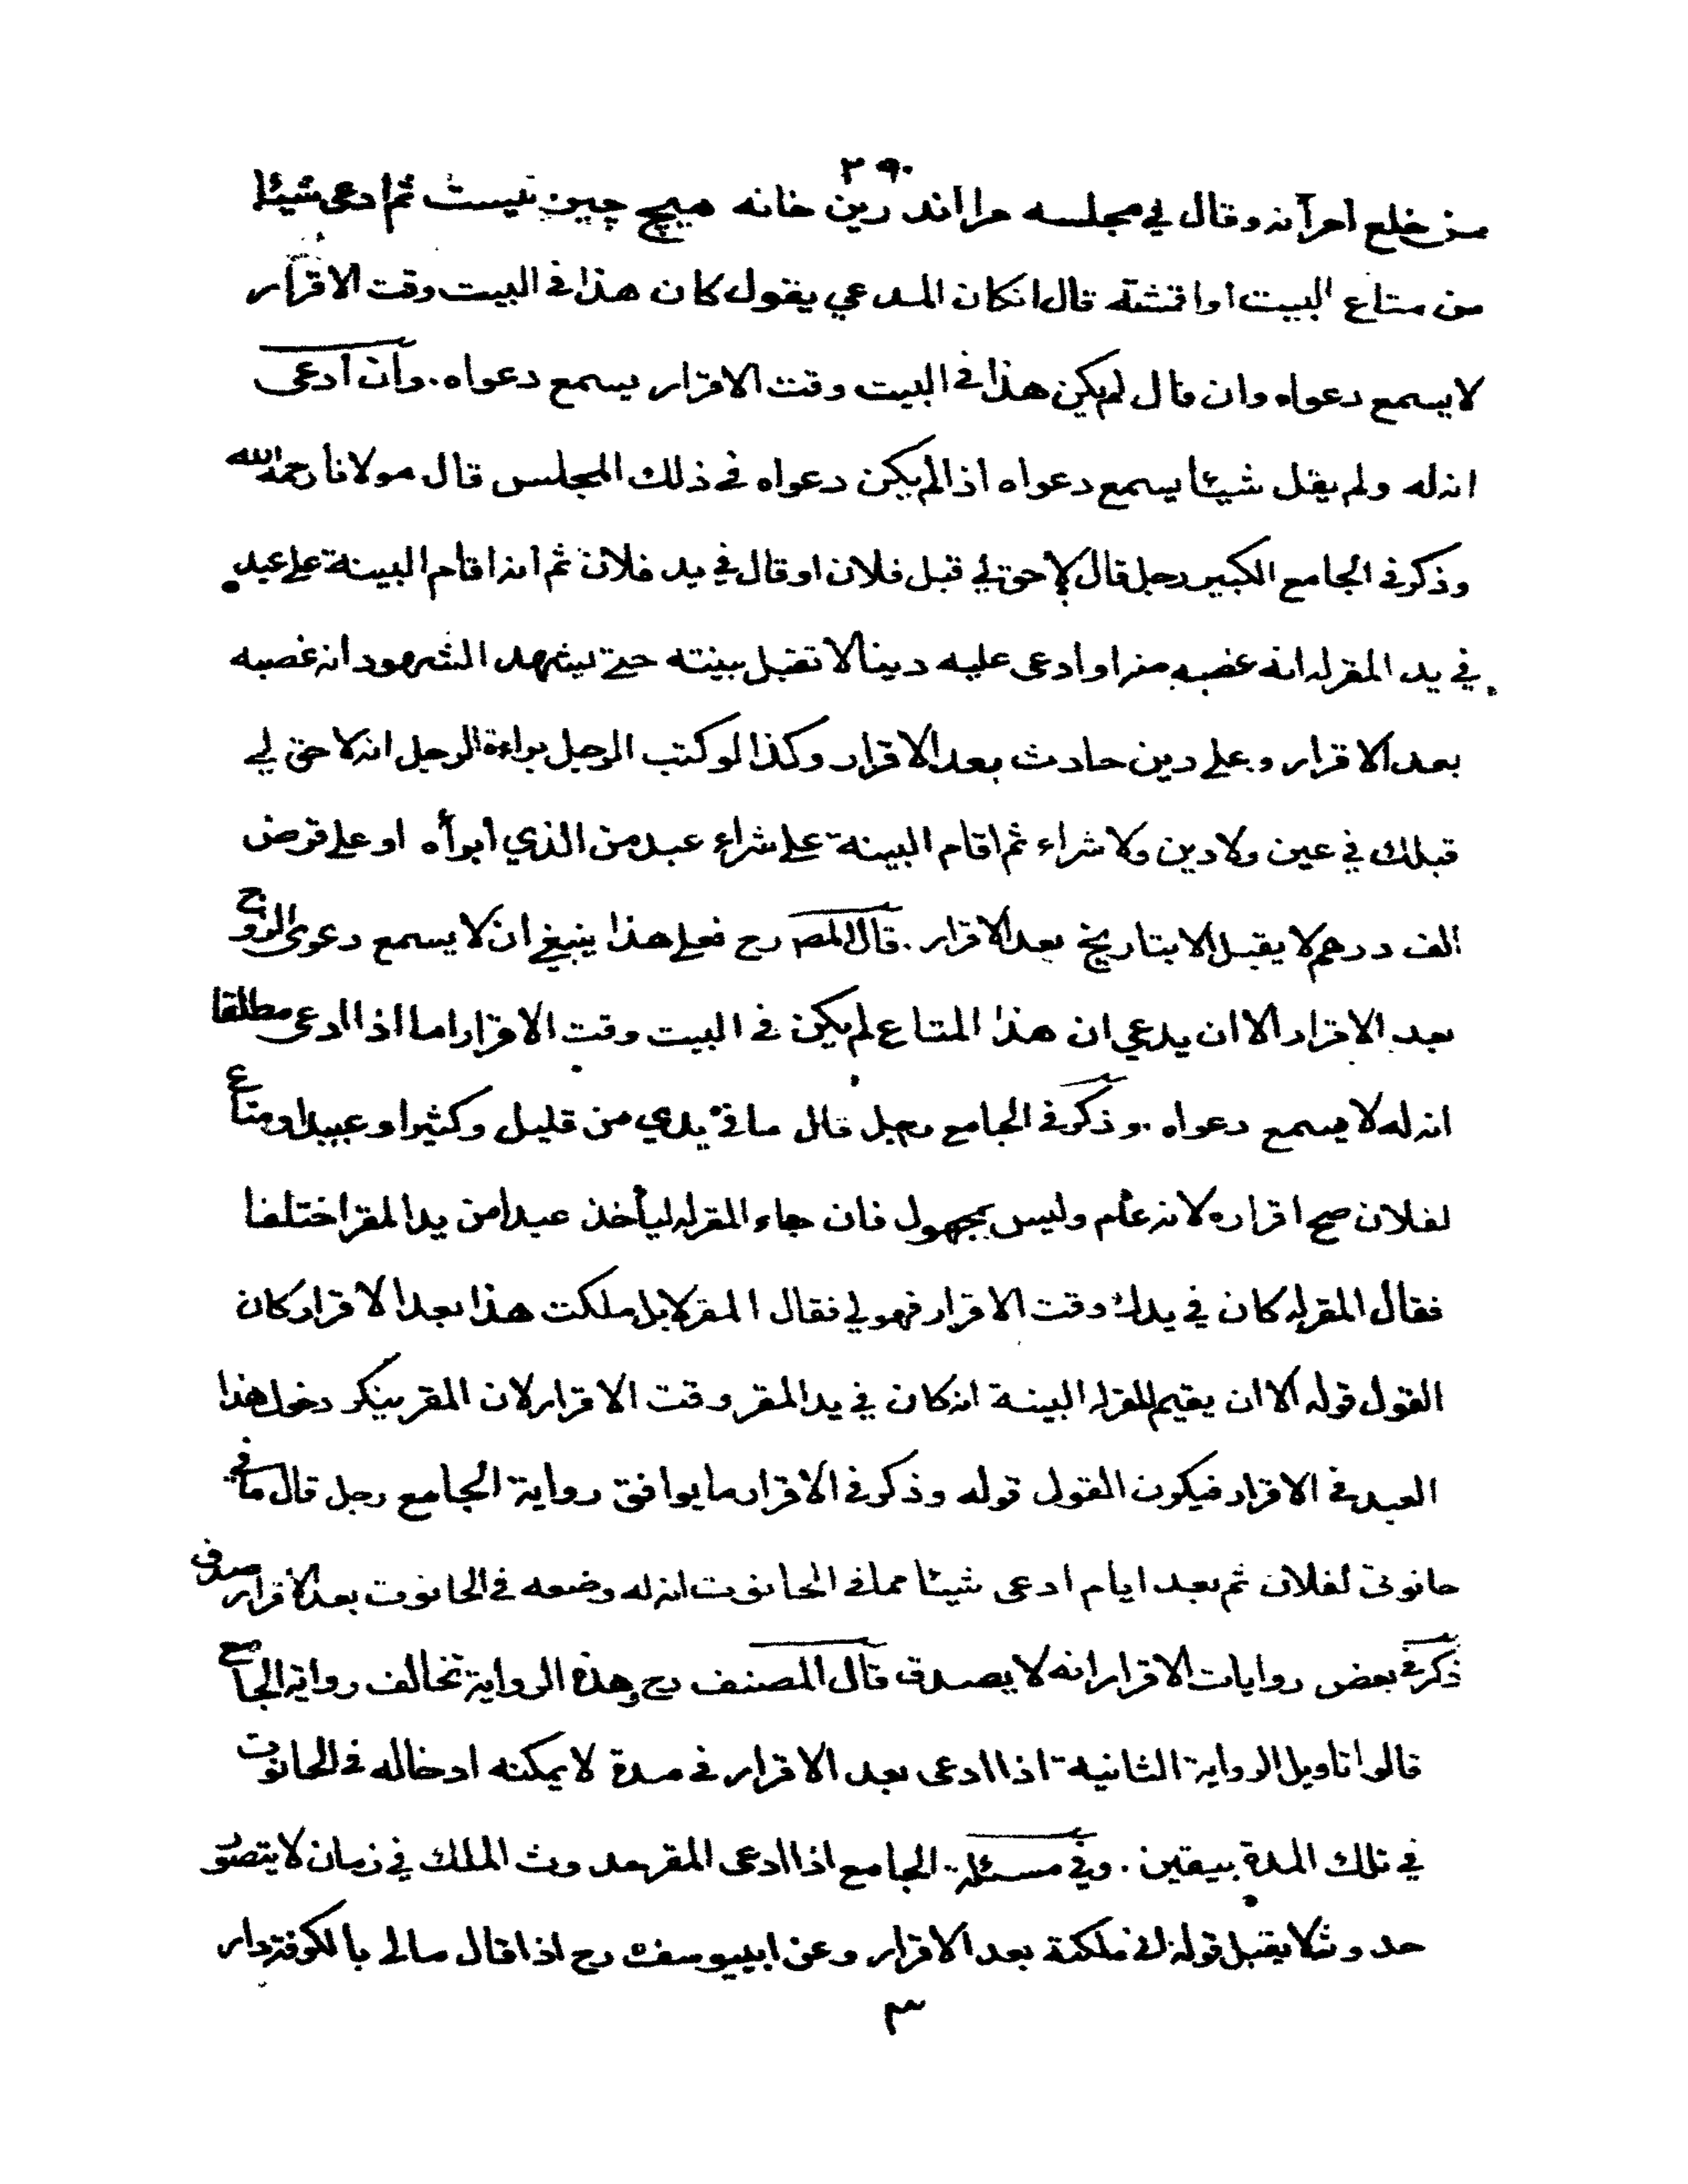 ٢٩٠
من خلع امرأته وقال في مجلسه مرا اندرين خانه هيچ چيز نيست ثم ادعى شيئا
من متاع البيت او اقمشته قال انكان المدعي يقول كان هذا في البيت وقت الاقرار
لا يسمع دعواه وان قال لم يكن هذا في البيت وقت الاقرار يسمع دعواه . وان ادعى
انه له ولم يقل شيئا يسمع دعواه اذا لم يكن دعواه في ذلك المجلس قال مولانا رحمه الله
وذكر في الجامع الكبير رجل قال لا حق لي قبل فلان او قال في يد فلان ثم انه اقام البينة على عبد
في يد المقر له انه غصبه منه او ادعى عليه دينا لا تقبل بينته حتى يشهد الشهود انه غصبه
بعد الاقرار وعلى دين حادث بعد الاقرار وكذا لو كتب الرجل براءة لرجل انه لا حق لي
قبلك في عين ولا دين ولا شراء ثم اقام البينة على شراء عبد من الذي ابرأه او على قرض
الف درهم لا يقبل الا بتاريخ بعد الاقرار . قال المص رح فعلى هذا ينبغي ان لا يسمع دعوى الزوج
بعد الاقرار الا ان يدعي ان هذا المتاع لم يكن في البيت وقت الاقرار اما اذا ادعى مطلقا
انه له لا يسمع دعواه . وذكر في الجامع رجل قال ما في يدي من قليل وكثير او عبيد او متاع
لفلان صح اقراره لانه عام وليس بمجهول فان جاء المقر له ليأخذ عبدا من يد المقر اختلفا
فقال المقر له كان في يدك وقت الاقرار فهو لي فقال المقر لا بل ملكت هذا بعد الاقرار كان
القول قوله الا ان يقيم المقر له البينة انه كان في يد المقر وقت الاقرار لان المقر ينكر دخول هذا
العبد في الاقرار فيكون القول قوله وذكر في الاقرار ما يوافق رواية الجامع رجل قال ما في
حانوتى لفلان ثم بعد ايام ادعى شيئا مما في الحانوت انه له وضعه في الحانوت بعد الاقرار صدق
ذكر في بعض روايات الاقرار انه لا يصدق قال المصنف رح وهذه الرواية تخالف رواية الجامع
قالوا تاويل الرواية الثانية اذا ادعى بعد الاقرار في مدة لا يمكنه ادخاله في الحانوت
في تلك المدة بيقين . وفي مسئلة الجامع اذا ادعى المقر حدوث الملك في زمان لا يتصور
حدوثه لا يقبل قوله اني ملكته بعد الاقرار وعن ابيبوسف رح اذا قال مالى بالكوفة دار
٣